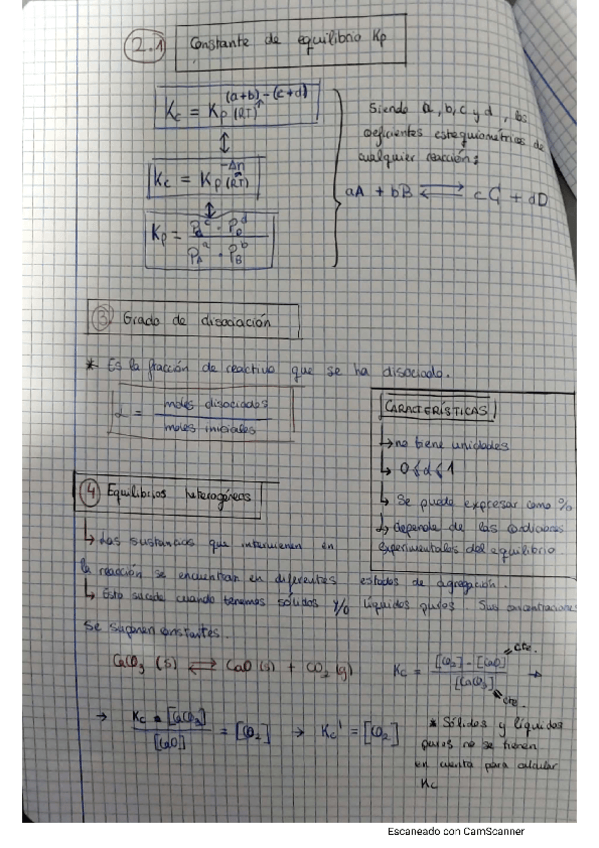 2.1 Constante de equilibrio Kp
Kc = Kp (RT)^(a+b)-(c+d)
Kc = Kp (RT)^-Δn
Kp = Pc^c · PD^d / PA^a · PB^b
Siendo a, b, c y d, los
coeficientes estequiométricos de
cualquier reacción:
aA + bB ⇄ cC + dD
③ Grado de disociación
* Es la fracción de reactivo que se ha disociado.
α = moles disociados / moles iniciales
CARACTERÍSTICAS
↳ no tiene unidades
↳ 0 < α < 1
↳ Se puede expresar como %
↳ depende de las condiciones
experimentales del equilibrio.
④ Equilibrios heterogéneos
↳ Las sustancias que intervienen en
la reacción se encuentran en diferentes estados de agregación.
↳ Esto sucede cuando tenemos sólidos y/o líquidos puros. Sus concentraciones
se suponen constantes.
CaCO3 (s) ⇄ CaO (s) + CO2 (g)
Kc = [CO2] · [CaO] / [CaCO3] →
cte.
cte.
→ Kc · [CaCO3] / [CaO] = [CO2] → Kc' = [CO2]
* Sólidos y líquidos
puros no se tienen
en cuenta para calcular
Kc
Escaneado con CamScanner